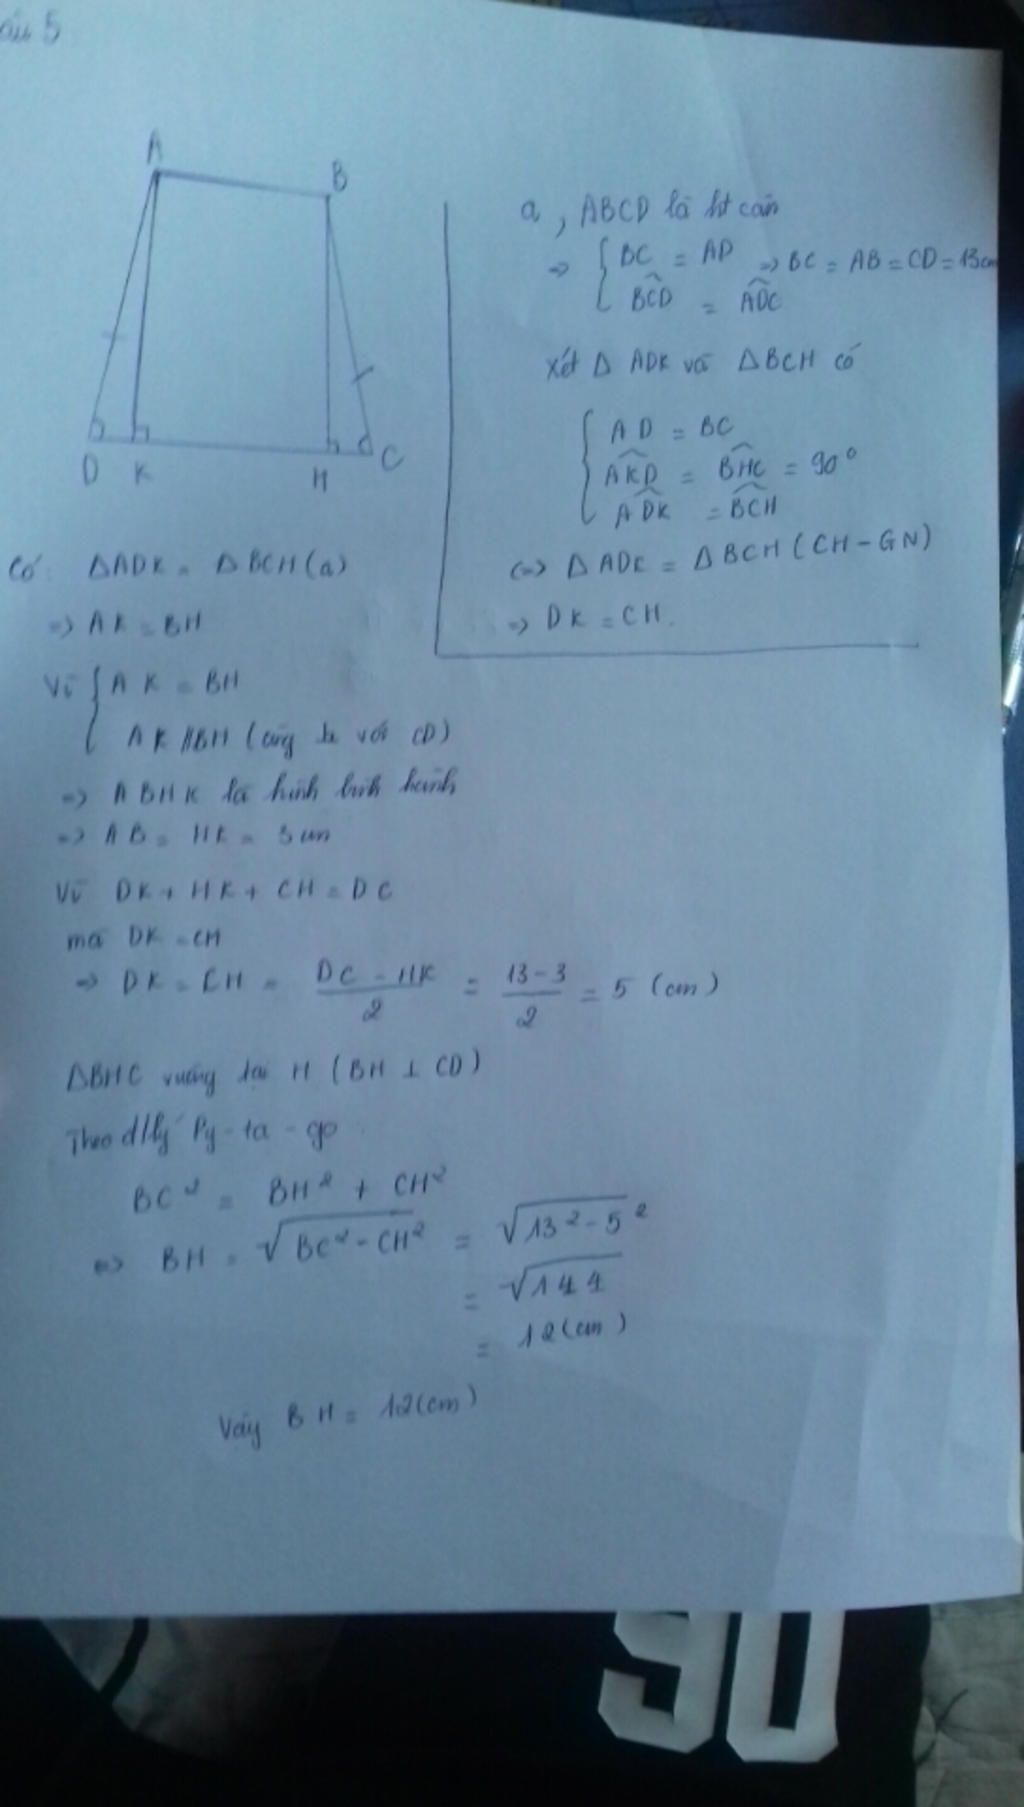 5
A
B
D K H C
a, ABCD là ht cân
=> { BC = AD => BC = AB = CD = 13cm
BCD = ADC
Xét Δ ADK và Δ BCH có
{ AD = BC
AKD = BHC = 90°
ADK = BCH
<=> Δ ADK = Δ BCH (CH-GN)
=> DK = CH.
Có ΔADK = ΔBCH (a)
=> AK = BH
Vì { AK = BH
AK // BH (cùng với CD)
=> ABHK là hình bình hành
=> AB = HK = 3 cm
Vì DK + HK + CH = DC
mà DK = CH
=> DK = CH = (DC - HK)/2 = (13-3)/2 = 5 (cm)
ΔBHC vuông tại H (BH ⊥ CD)
Theo đ/lý Py-ta-go
BC² = BH² + CH²
=> BH = √BC² - CH² = √13² - 5²
= √144
= 12 (cm)
Vậy BH = 12 (cm)
90